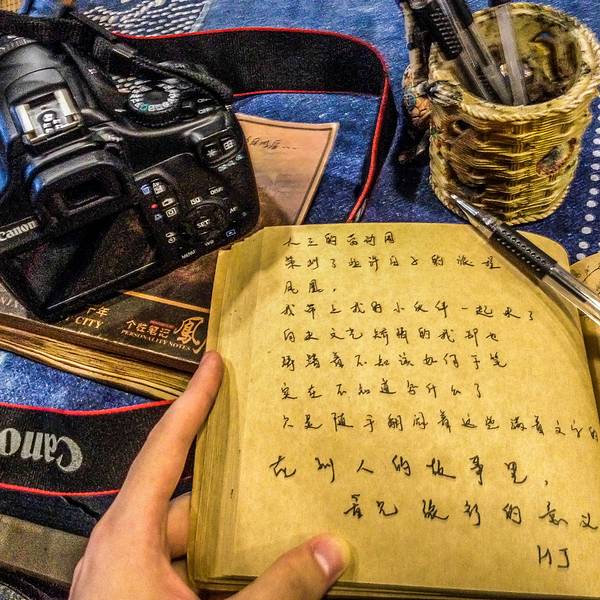 Canon
DISP.
SET
AF
MENU
十年
CITY
个性笔记
凤
PERSONALITY NOTES
Canon
三的
来到了些许日子的旅程
凤凰,
我带上我的小伙伴一起来了
向来文艺矫情的我却也
踌躇着不知该如何下笔
实在不知道写什么了
只是随手翻阅着这些满着文字的
在别人的故事里,
看见旅行的意义
HJ